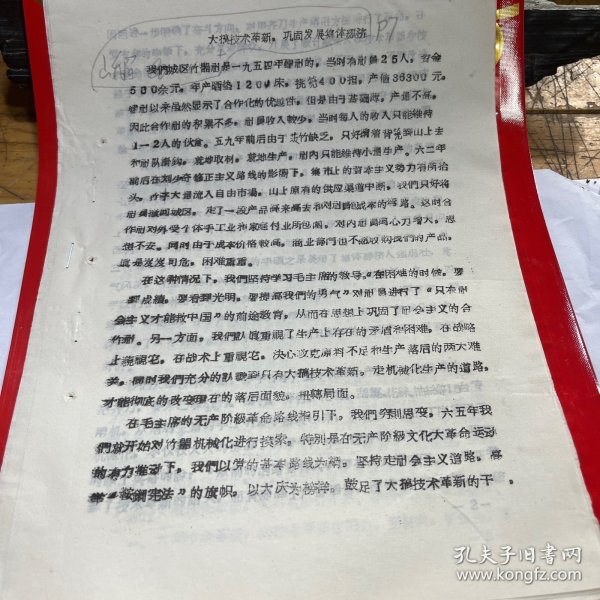 大搞技术革新，巩固发展集体经济
我們城区竹器社是一九五四年建社的，当时有社員25人，资金
500余元，年产晒垫1200床，箩筐400担，产值36300元，
建社以来虽然显示了合作化的优越性，但是由于基础薄，产量不高，
因此合作社的积累不多，社員收入較少，当时每人的收入只能维持
1—2人的伙食。五九年前后由于 竹缺乏，只好 着背 山上去
和社員 ，就地取材，就地生产，社內只能維持小量生产。六二年
前后在刘少奇修正主义路线的影响下，集市上的資本主义势力有所抬
头，竹木大量流入自由市場，山上原有的供应渠道中断，我們只好将
社員 回城区，走了一段产品 来 去和对 成本的弯路。这时合
作社对外受个体手工业和家庭付业所包围，对內社員离心力增大，思
想不安。同时由于成本价格較高，商业部門也不愿收购我們的产品，
真是岌岌可危，困难重重。
在这种情况下，我們坚持学习毛主席的教导“在困难的时候，要
看到成績，要看到光明，要提高我們的勇气”对社員进行了“只有社
会主义才能救中国”的前途教育，从而在思想上巩固了社会主义的合
作社。另一方面，我們认真重視了生产上存在的矛盾和困难，在战略
上藐視它，在战术上重視它，决心攻克原料不足和生产落后的两大难
关，同时我們充分的认識到只有大搞技术革新，走机械化生产的道路，
才能彻底的改变 的落后面貌，扭轉局面。
在毛主席的无产阶級革命路线指引下，我們穷则思变，六五年我
們就开始对竹器机械化进行摸索，特别是在无产阶級文化大革命运动
的有力推动下，我們以党的基本路线为綱，坚持走社会主义道路，高
举“鞍鋼宪法”的旗帜，以大庆为榜样，鼓足了大搞技术革新的干。
—2—
孔夫子旧书网
kongfz.com